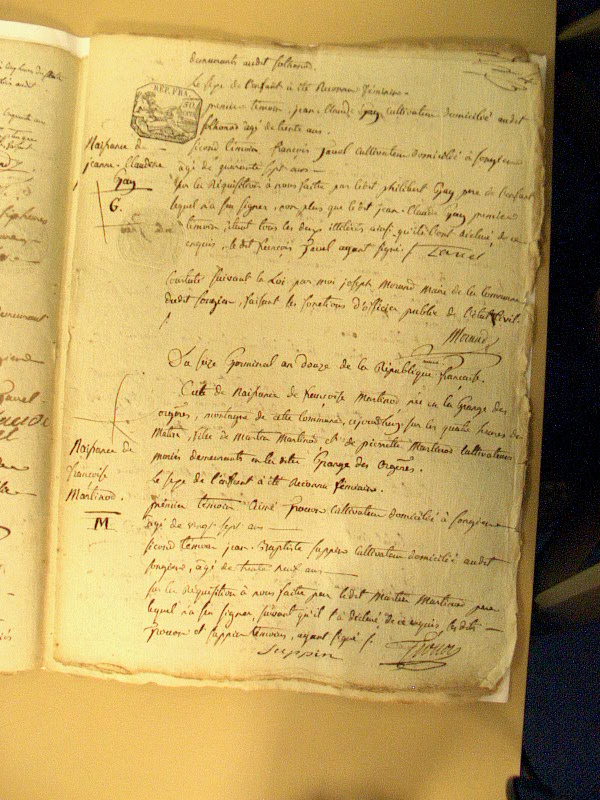 demeurants audit Solhonod.
le sexe de l'enfant à été Reconnu féminin.
premier témoin, jean-Claude Gay, cultivateur domicilié audit
Solhonod agé de trente ans.
REP. FRA.
50
Naissance de
jeanne-Claudine
Gay
G.
second témoin françois Javel cultivateur domicilié à Songieu
âgé de quarante sept ans
Sur la Réquisition à nous faite par ledit philibert Gay pere de l'enfant
lequel n'a su signer, non plus que ledit jean-Claude Gay premier
témoin, étant tous les deux illitérés ainsi qu'ils l'ont déclaré, de ce
enquis, ledit françois Javel ayant signé. Javel
Constaté suivant la Loi par moi joseph Morand Maire de la Commune
dudit Songieu, faisant les fonctions d'officier public de l'état Civil.
Morand
Du seize Germinal an douze de la République française.
Acte de Naissance de françoise Martinod née en la Grange des
orgères, montagne de cette Commune, cejourd'huy, sur les quatre heures du
Matin, fille de Martin Martinod et de pierrette Martinod Cultivateurs
mariés demeurants en la ditte Grange des Orgères.
le sexe de l'enfant à été Reconnu féminin.
Naissance de
françoise
Martinod.
M
premier témoin Aimé cultivateur domicilié à Songieu
âgé de vingt sept ans
second témoin jean-Baptiste Sappin cultivateur domicilié audit
Songieu, âgé de trente neuf ans
sur la Réquisition à nous faite par ledit Martin Martinod pere
lequel n'a su signer, suivant qu'il l'a déclaré, de ce enquis, lesdits
et Sappin témoins, ayant signé.
Sappin